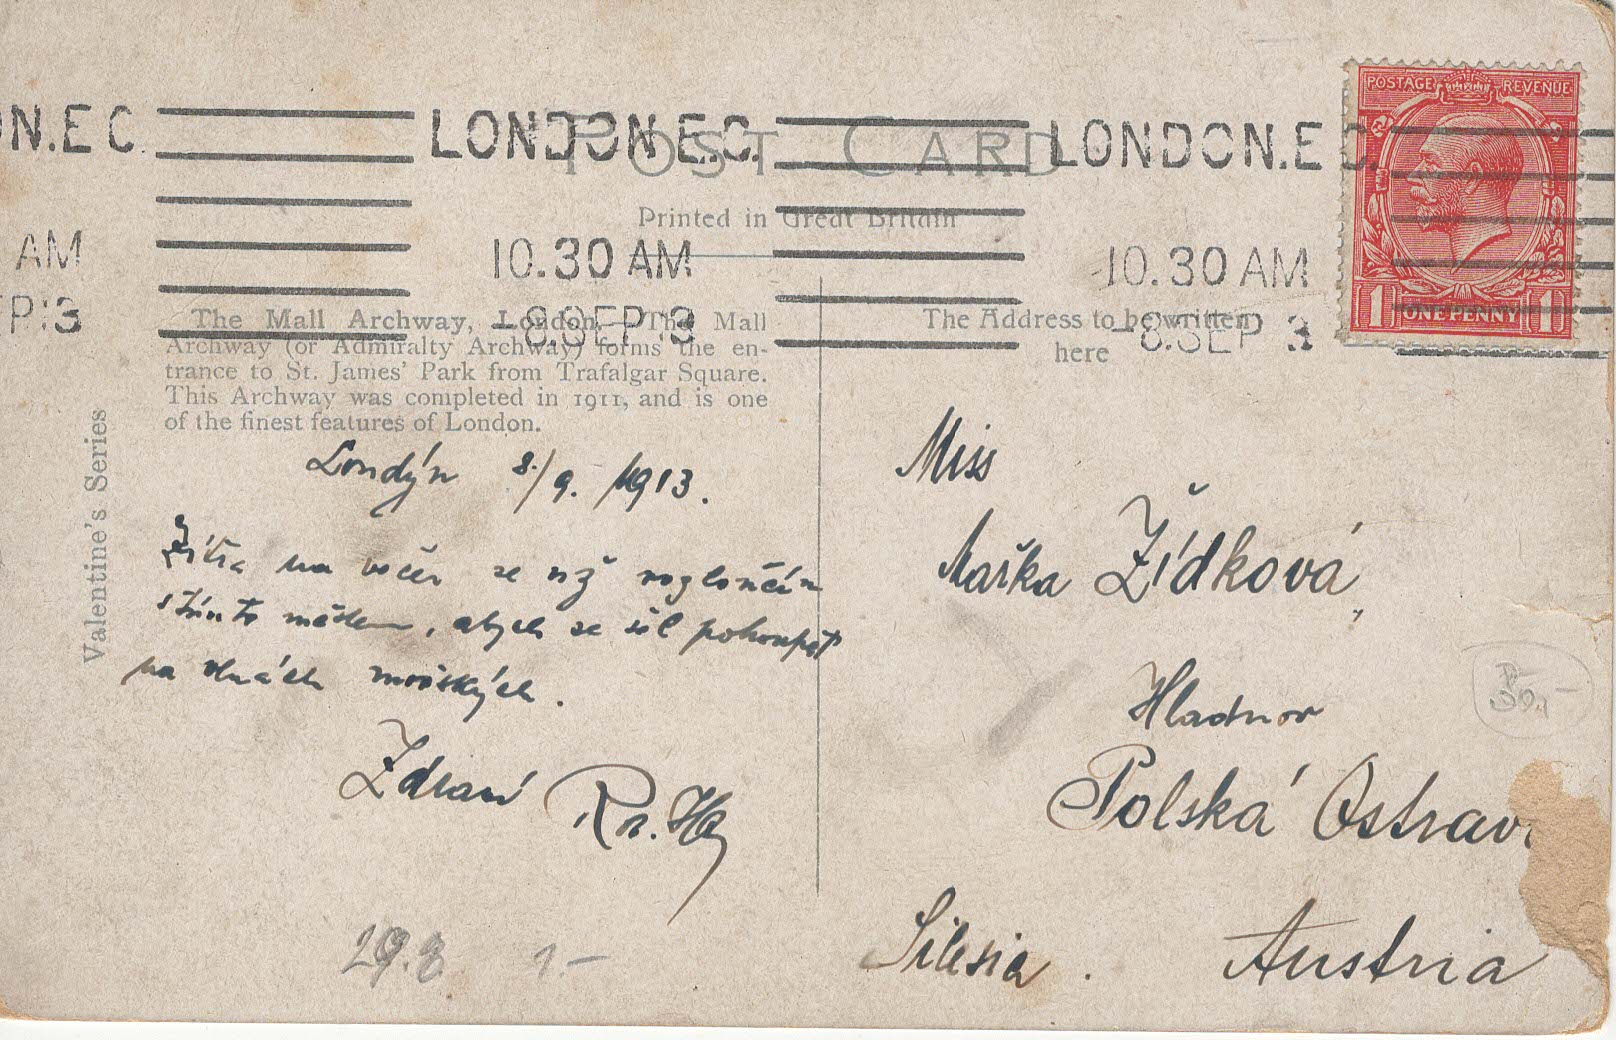 LONDON.E.C.
LONDON.E.C.
N.E.C.
POST CARD
POSTAGE REVENUE
Printed in Great Britain
AM
10.30 AM
10.30 AM
EP 13
-8.SEP 13
-8.SEP 3
1 ONE PENNY 1
The Mall Archway, London.—The Mall
Archway (or Admiralty Archway) forms the en-
trance to St. James' Park from Trafalgar Square.
This Archway was completed in 1911, and is one
of the finest features of London.
Valentine's Series
The Address to be written
here
Londýn 8./9. 1913.
Zítra na večer se už rozloučím
s tímto městem, abych se šel pohoupat
na vlnách mořských.
Zdraví
Miss
Mařka Žídková,
Hladnov
Polská Ostrava
Silesia. Austria
50,-
29.8 1.-